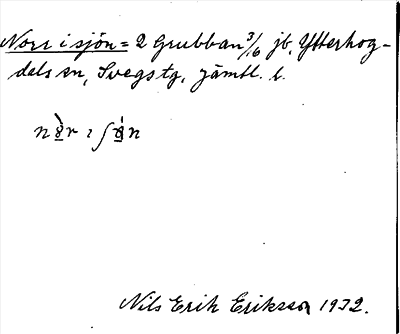 Norr i sjön = 2 Grubban 3/16 jb, Ytterhog-
dals sn, Svegs tg, Jämtl. l.
Nils Erik Eriksson 1932.